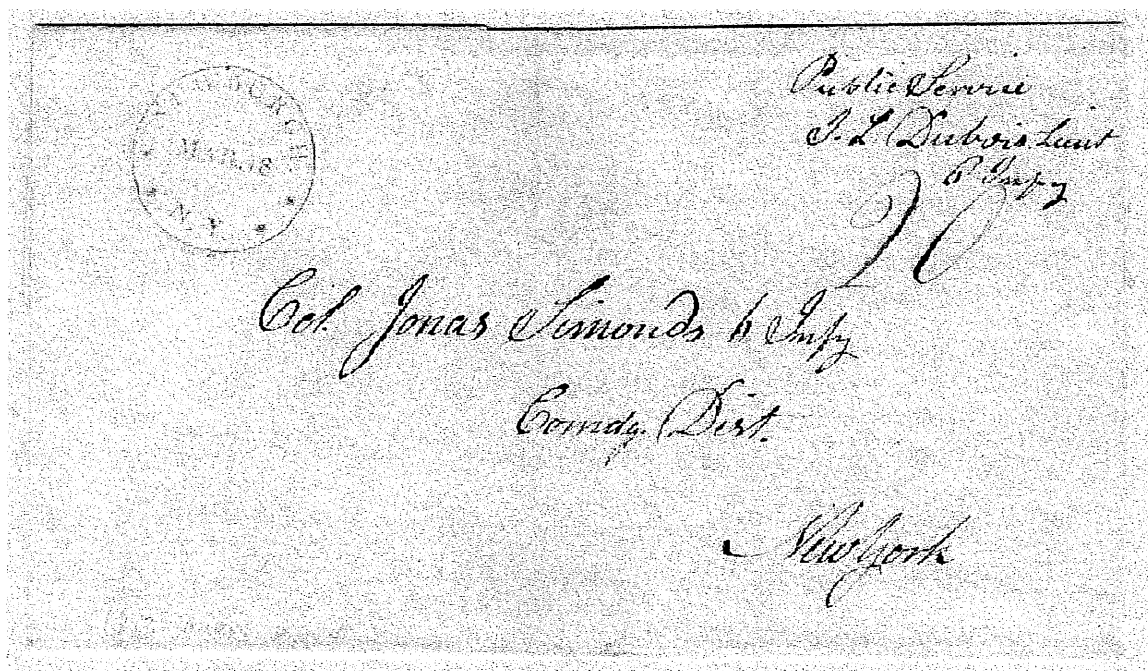 NEWBURGH
MAR. 18
N.Y.
Public Service
J. L. Dubois Lieut
6 Infy
20
Col. Jonas Simonds 6 Infy
Comdg. Dist.
New York